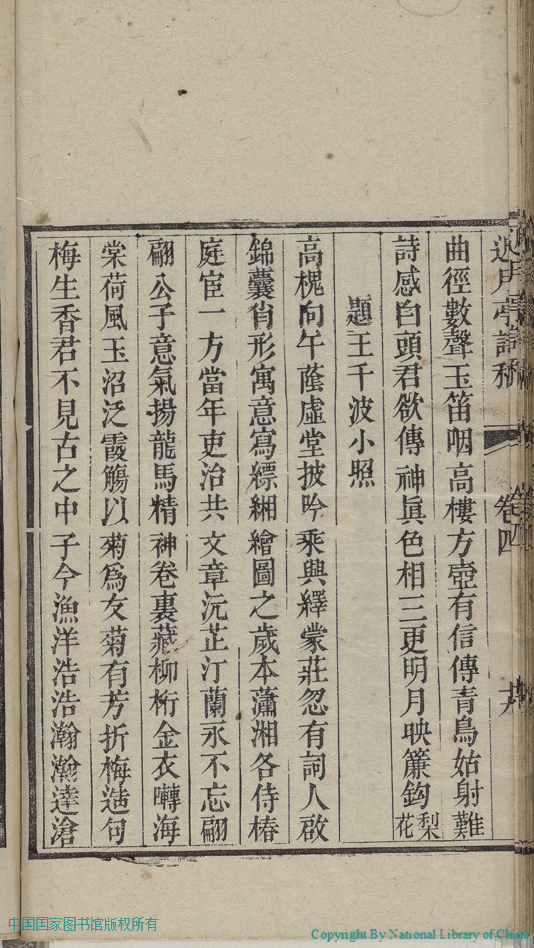 延月亭詩稿 卷四
曲徑數聲玉笛咽高樓方壺有信傳青鳥姑射難
詩感白頭君欲傳神眞色相三更明月映簾鈎梨花
題王千波小照
高槐向午蔭虛堂披吟乘興繹蒙莊忽有詞人啟
錦囊肖形寓意寫縹緗繪圖之歲本瀟湘各侍椿
庭宦一方當年吏治共文章沅芷汀蘭永不忘翩
翩公子意氣揚龍馬精神卷裏藏柳桁金衣囀海
棠荷風玉沼泛霞觴以菊爲友菊有芳折梅謎句
梅生香君不見古之中子今漁洋浩浩瀚瀚達滄
中国国家图书馆版权所有
Copyright By National Library of China